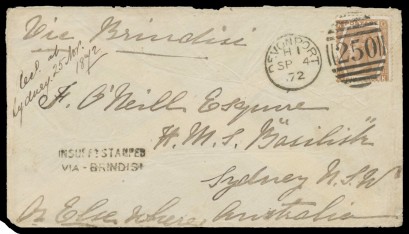 Via, Brindisi
DEVONPORT
H 1
SP 4
72
250
Recd. at
Sydney. 25 Nov.
1872
F. O'Neill Esquire
H. M. S. "Basilisk"
INSUFFY STAMPED
VIA - BRINDISI
Sydney N. S. W
Or Else where
Australia